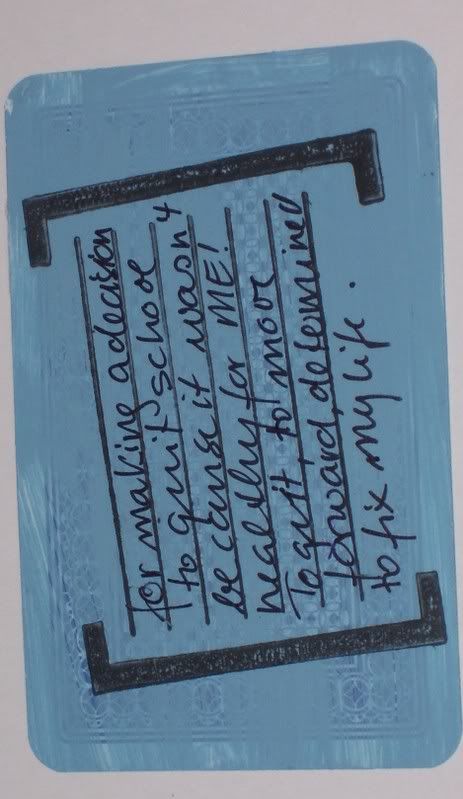 for making a decision
to quit school
because it wasn't
healthy for ME!
To quit, to move
forward, determined
to fix my life.